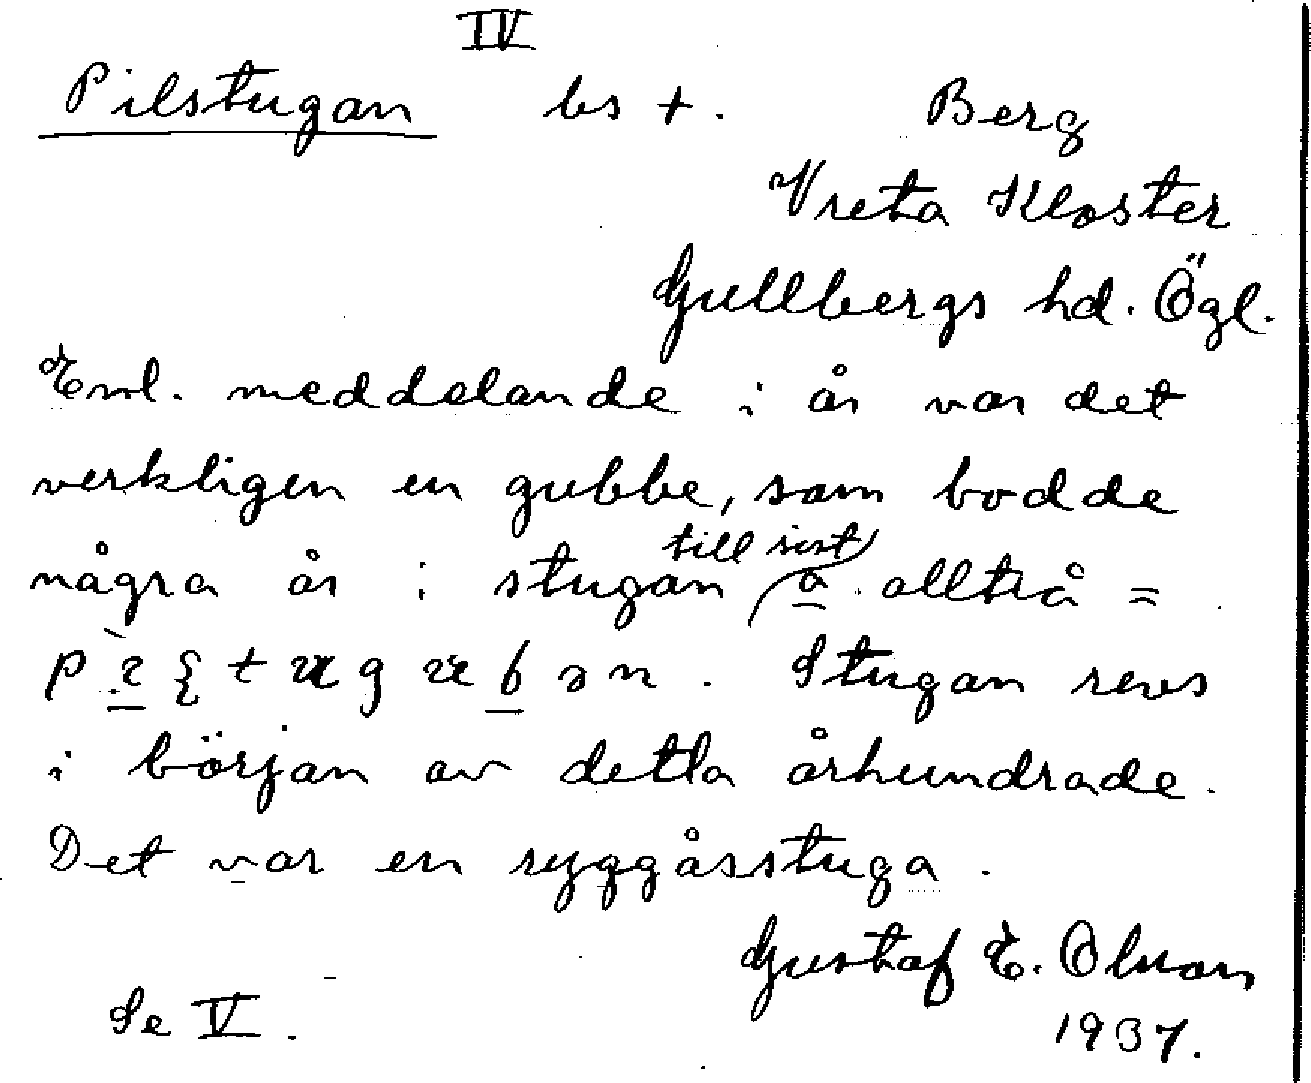 IV
Pilstugan bs +. Berg
Vreta Kloster
Gullbergs hd. Ögl.
Enl. meddelande i år var det
verkligen en gubbe, som bodde
några år i stugan till sist a. alltså =
Stugan revs
i början av detta århundrade.
Det var en ryggåsstuga.
Gustaf E. Olsson
1937.
Se V.